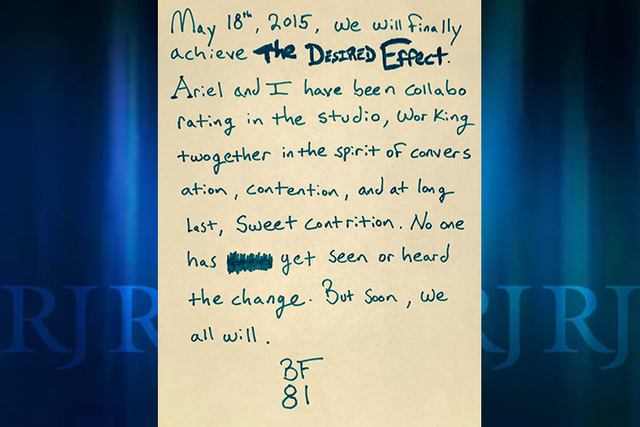 May 18th, 2015, we will finally
achieve The DESIRED Effect.
Ariel and I have been collabo
rating in the studio, Working
twogether in the spirit of convers
ation, contention, and at long
last, Sweet contrition. No one
has yet seen or heard
the change. But soon, we
all will.
BF
81
RJ RJ RJ RJ